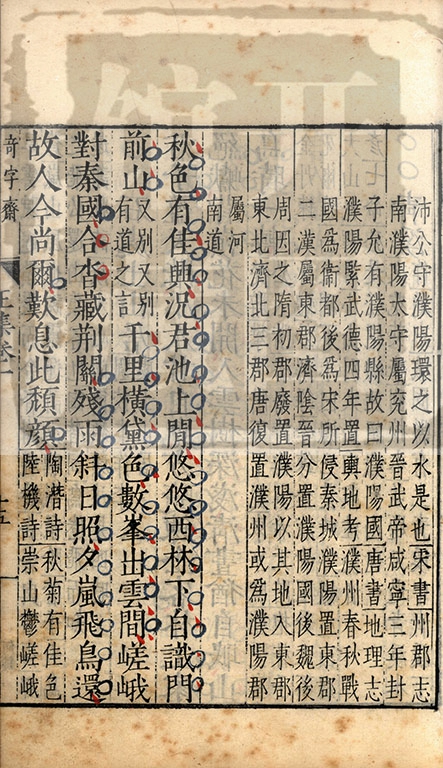 沛公守濮陽環之以水是也宋書州郡志
南濮陽太守屬兗州晉武帝咸寧三年封
子允有濮陽縣故曰濮陽國唐書地理志
濮陽緊武德四年置輿地考濮州春秋戰
國爲衛都後爲宋所侵秦城濮陽置東郡
二漢屬東郡濟陰晉分置濮陽國後魏後
周因之隋初郡廢置濮陽以其地入東郡
東北濟北三郡唐復置濮州或爲濮陽郡
屬河
南道
秋色有佳興況君池上閒悠悠西林下自識門
前山又別又別
有道之言千里橫黛色數峯出雲間嵯峨
對秦國合沓藏荆關殘雨斜日照夕嵐飛鳥還
故人今尚爾歎息此頹顔陶潛詩秋菊有佳色
陸機詩崇山鬱嵯峨
竒字齋
王集卷一
十五